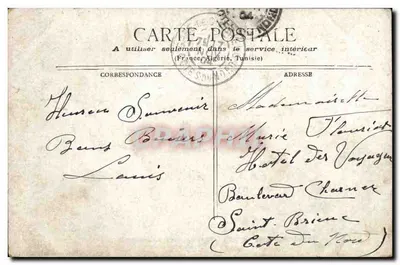 CARTE POSTALE
A utiliser seulement dans le service intérieur
(France, Algérie, Tunisie)
CORRESPONDANCE
ADRESSE
Heureux Souvenir
Bons Baisers
Louis
Mademoiselle
Marie
Hotel des Voyageurs
Boulevard Charner
Saint-Brieuc
(Cote du Nord)